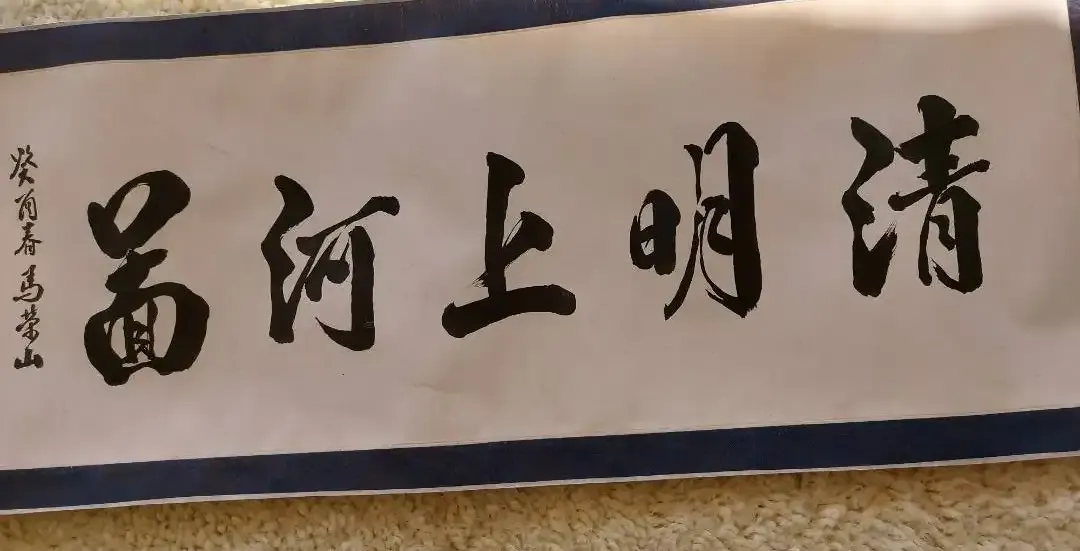 清明上河啚
癸酉春馬荣山